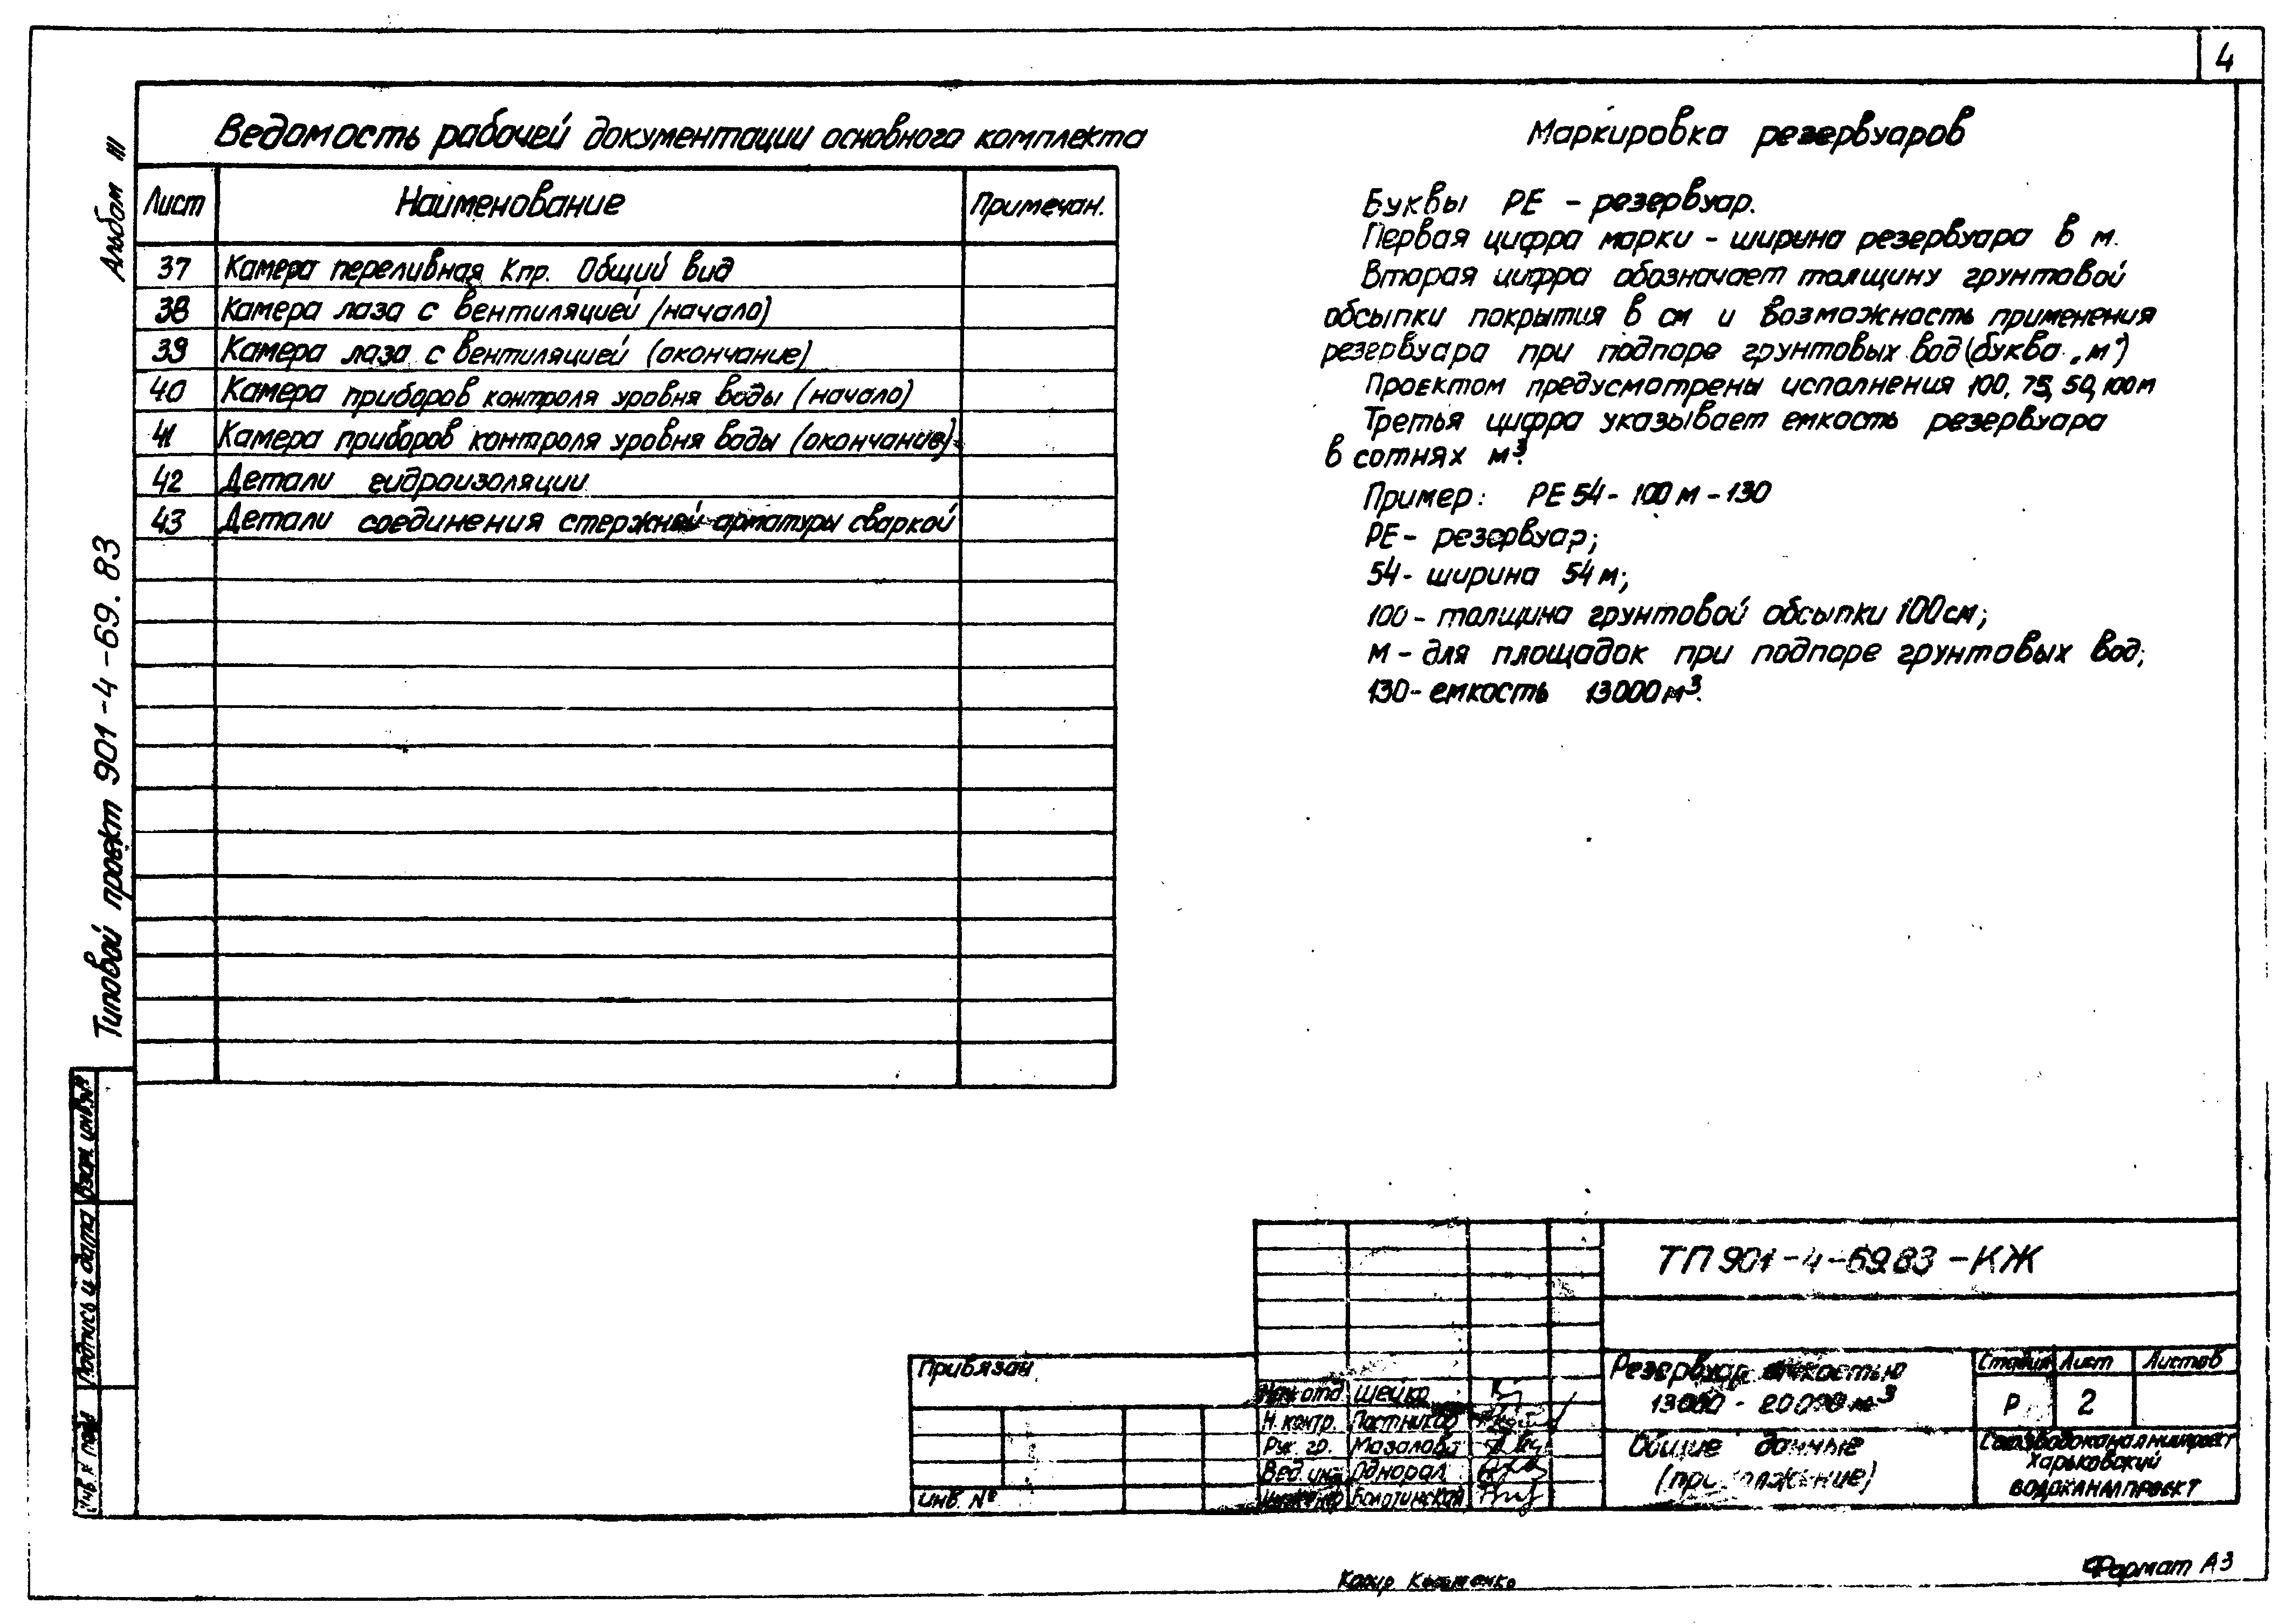 4
Альбом III
Типовой проект 901-4-69.83
Ведомость рабочей документации основного комплекта
Лист Наименование Примечан.
37 Камера переливная Кпр. Общий вид
38 Камера лаза с вентиляцией /начало)
39 Камера лаза с вентиляцией (окончание)
40 Камера приборов контроля уровня воды (начало)
41 Камера приборов контроля уровня воды (окончание)
42 Детали гидроизоляции
43 Детали соединения стержней арматуры сваркой
Маркировка резервуаров
Буквы РЕ - резервуар.
Первая цифра марки - ширина резервуара в м.
Вторая цифра обозначает толщину грунтовой
обсыпки покрытия в см и возможность применения
резервуара при подпоре грунтовых вод (буква „м")
Проектом предусмотрены исполнения 100, 75, 50, 100м
Третья цифра указывает емкость резервуара
в сотнях м³.
Пример: РЕ 54 - 100 м - 130
РЕ - резервуар;
54 - ширина 54 м;
100 - толщина грунтовой обсыпки 100 см;
м - для площадок при подпоре грунтовых вод;
130 - емкость 13000 м³.
Взам. инв. №
Подпись и дата
Инв. № подл
ТП 901-4-69.83 -КЖ
Привязан
Инв. №
Нач. отд. Шейко
Н. контр. Постников
Рук. гр. Мазалова
Вед. инж. Однорал
Инженер Болотинская
Резервуар емкостью
13000 - 20000 м³
Стадия Лист Листов
Р 2
Общие данные
(продолжение)
Союзводоканалниипроект
Харьковский
ВОДОКАНАЛПРОЕКТ
Копир
Формат А3